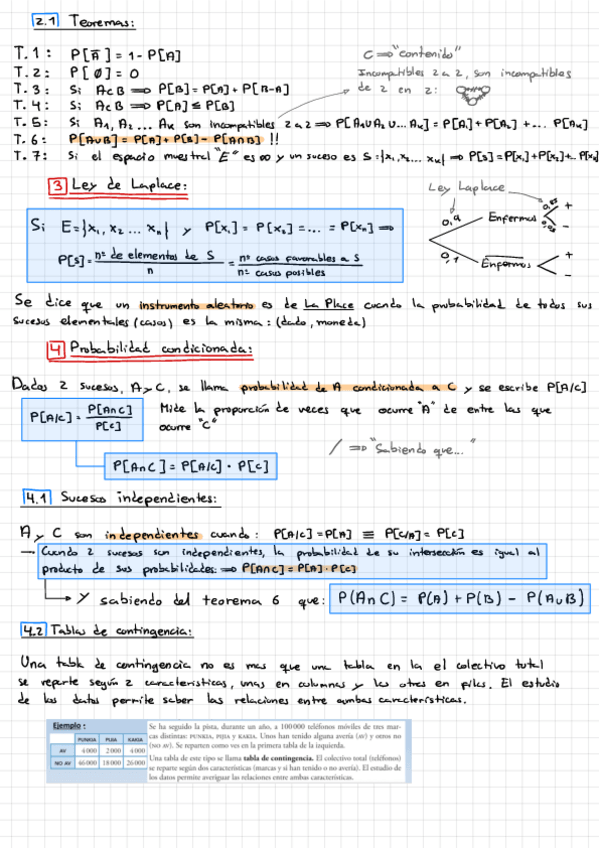 2.1 Teoremas:
T. 1 : P[Ā] = 1 - P[A]
T. 2 : P[Ø] = 0
T. 3 : Si A⊂B ⟹ P[B] = P[A] + P[B-A]
T. 4 : Si A⊂B ⟹ P[A] ≤ P[B]
C ⟹ "contenido"
Incompatibles 2 a 2, son incompatibles
de 2 en 2:
T. 5 : Si A1, A2 ... AK son incompatibles 2 a 2 ⟹ P[A1∪A2∪...AK] = P[A1] + P[A2] + ... P[AK]
T. 6 : P[A∪B] = P[A] + P[B] - P[A∩B] !!
T. 7 : Si el espacio muestral "E" es ∞ y un suceso es S = {x1, x2... xK} ⟹ P[S] = P[x1] + P[x2] + .. P[xK]
3 Ley de Laplace:
Si E = {x1, x2 ... xn} y P[x1] = P[x2] = ... = P[xn] ⟹
P[S] = nº de elementos de S / n = nº casos favorables a S / nº casos posibles
Ley Laplace
0,9 Enfermos + -
0,1 Enfermos + -
Se dice que un instrumento aleatorio es de La Place cuando la probabilidad de todos sus
sucesos elementales (casos) es la misma : (dado, moneda)
4 Probabilidad condicionada:
Dados 2 sucesos, A y C, se llama probabilidad de A condicionada a C y se escribe P[A/C]
P[A/C] = P[A∩C] / P[C]
Mide la proporción de veces que ocurre "A" de entre las que
ocurre "C"
/ ⟹ "Sabiendo que..."
P[A∩C] = P[A/C] · P[C]
4.1 Sucesos independientes:
A y C son independientes cuando : P[A/C] = P[A] ≡ P[C/A] = P[C]
Cuando 2 sucesos son independientes, la probabilidad de su intersección es igual al
producto de sus probabilidades: ⟹ P[A∩C] = P[A] · P[C]
Y sabiendo del teorema 6 que: P(A∩C) = P(A) + P(B) - P(A∪B)
4.2 Tablas de contingencia:
Una tabla de contingencia no es mas que una tabla en la el colectivo total
se reparte según 2 caracteristicas, unas en columnas y las otras en filas. El estudio
de los datos permite saber las relaciones entre ambas características.
Ejemplo :
PUNKIA PIJIA KAKIA
AV 4 000 2 000 4 000
NO AV 46 000 18 000 26 000
Se ha seguido la pista, durante un año, a 100 000 teléfonos móviles de tres mar-
cas distintas: PUNKIA, PIJIA y KAKIA. Unos han tenido alguna avería (AV) y otros no
(NO AV). Se reparten como ves en la primera tabla de la izquierda.
Una tabla de este tipo se llama tabla de contingencia. El colectivo total (teléfonos)
se reparte según dos características (marcas y si han tenido o no avería). El estudio de
los datos permite averiguar las relaciones entre ambas características.